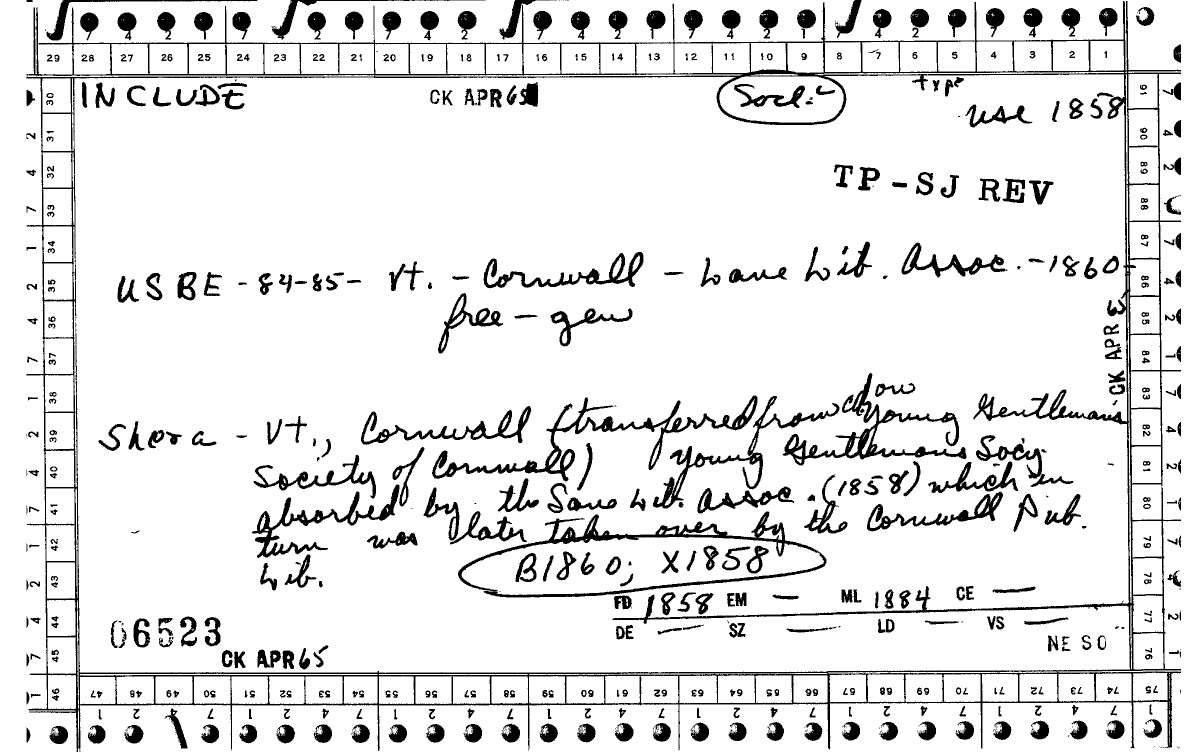 7 4 2 1 7 4 2 1 7 4 2 1 7 4 2 1 7 4 2 1 7 4 2 1 7 4 2 1
29 28 27 26 25 24 23 22 21 20 19 18 17 16 15 14 13 12 11 10 9 8 7 6 5 4 3 2 1
INCLUDE CK APR 65 Socl. type
use 1858
TP-SJ REV
USBE - 84-85- Vt. - Cornwall - Lane Lib. Assoc. - 1860-
free - gen
CK APR 65
Shera - Vt., Cornwall (transferred from Young Gentlemans
Society of Cornwall) Young Gentlemans Socy.
absorbed by the Sane Lib. Assoc. (1858) which in
turn was later taken over by the Cornwall Pub.
Lib.
B1860; X1858
FD 1858 EM — ML 1884 CE —
DE — SZ — LD — VS —
06523
NE SO
CK APR 65
30 31 32 33 34 35 36 37 38 39 40 41 42 43 44 45 46
91 90 89 88 87 86 85 84 83 82 81 80 79 78 77 76 75
47 48 49 50 51 52 53 54 55 56 57 58 59 60 61 62 63 64 65 66 67 68 69 70 71 72 73 74 75